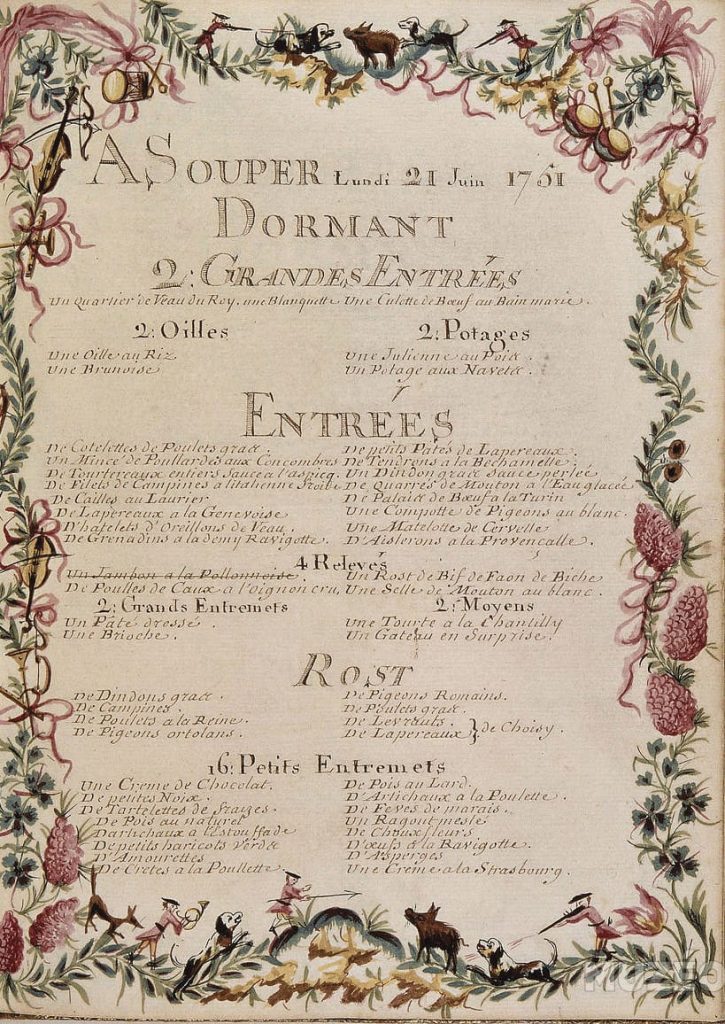 A SOUPER Lundi 21 Juin 1751
DORMANT
2: GRANDES ENTRÉES
Un Quartier de Veau du Roy, une Blanquette Une Culotte de Bœuf au Bain marie.
2: Oilles
Une Oille au Riz
Une Brunoise
2: Potages
Une Julienne au Pois.
Un Potage aux Navets.
ENTRÉES
De Cotelettes de Poulets gras.
Un Mince de Poullardes aux Concombres
De Tourtereaux entiers Sauce a l'aspicq.
De Filets de Campines a litalienne
De Cailles au Laurier
De Lapereaux a la Genevoise
D'hatelets d'Oreillons de Veau.
De Grenadins a la demy Ravigotte.
De petits Pâtés de Lapereaux.
De Tendrons a la Bechamelle.
Un Dindon gras Sauce perlée
De Quarrés de Mouton a l'Eau glacée
De Palais de Bœuf a la Turin
Une Compotte de Pigeons au blanc.
Une Matelotte de Cervelle
D'Aislerons a la Provençalle.
4 Relevés
Un Jambon a la Pollonnoise.
De Poulles de Caux a l'oignon cru,
Un Rost de Bif de Faon de Biche
Une Selle de Mouton au blanc.
2: Grands Entremets
Un Pâté dressé.
Une Brioche.
2: Moyens
Une Tourte a la Chantilly
Un Gateau en Surprise.
ROST
De Dindons gras.
De Campines.
De Poulets a la Reine.
De Pigeons ortolans.
De Pigeons Romains.
De Poulets gras.
De Levrauts.
De Lapereaux } de Choisy.
16: Petits Entremets
Une Creme de Chocolat.
De petites Noix.
De Tartelettes de Fraizes
De Pois au naturel
Dartichaux a l'Estouffade
De petits haricots Verds
D'Amourettes
De Cretes a la Poullette
De Pois au Lard.
D'Artichaux a la Poulette.
De Feves de marais.
Un Ragout meslé
De Chouxfleurs
D'œufs a la Ravigotte.
D'Asperges
Une Crême a la Strasbourg.
MUZÉO